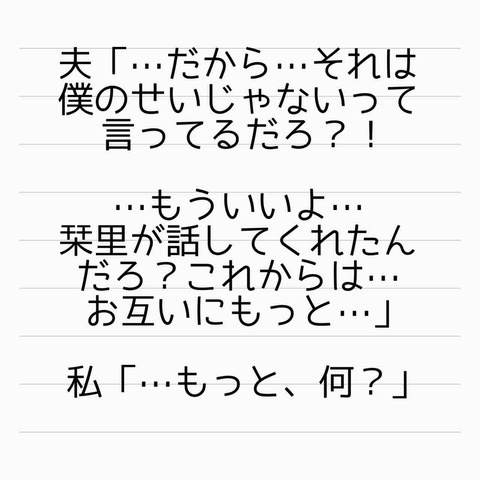 夫「…だから…それは
僕のせいじゃないって
言ってるだろ？！
…もういいよ…
栞里が話してくれたん
だろ？これからは…
お互いにもっと…」
私「…もっと、何？」